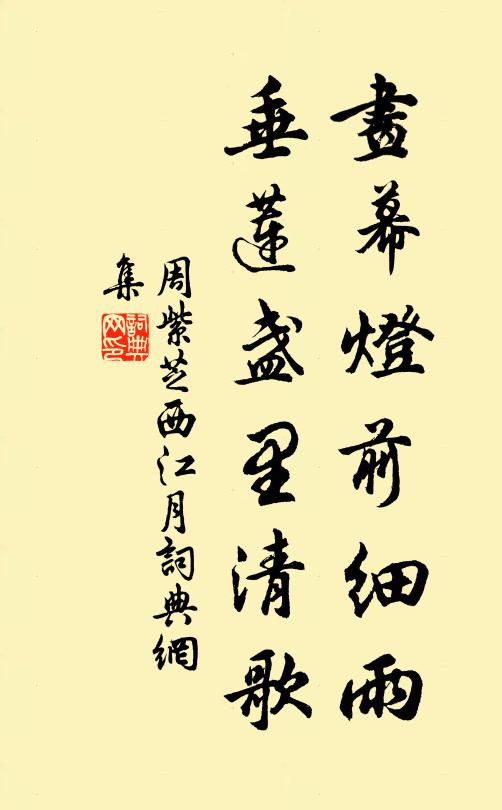 畫幕燈前細雨
垂蓮盞里清歌
周紫芝西江月詞典網
集
詞典
网印